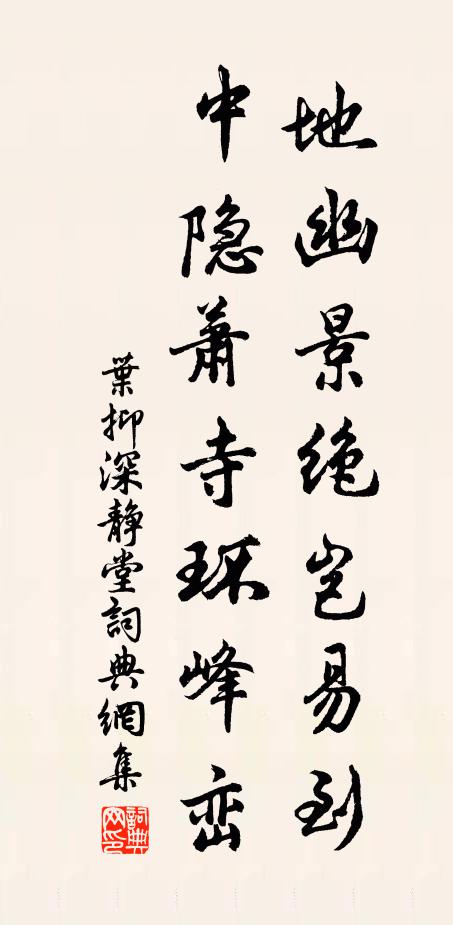 地幽景绝岂易到
中隐萧寺环峰峦
葉抑深靜堂詞典網集
詞典网印